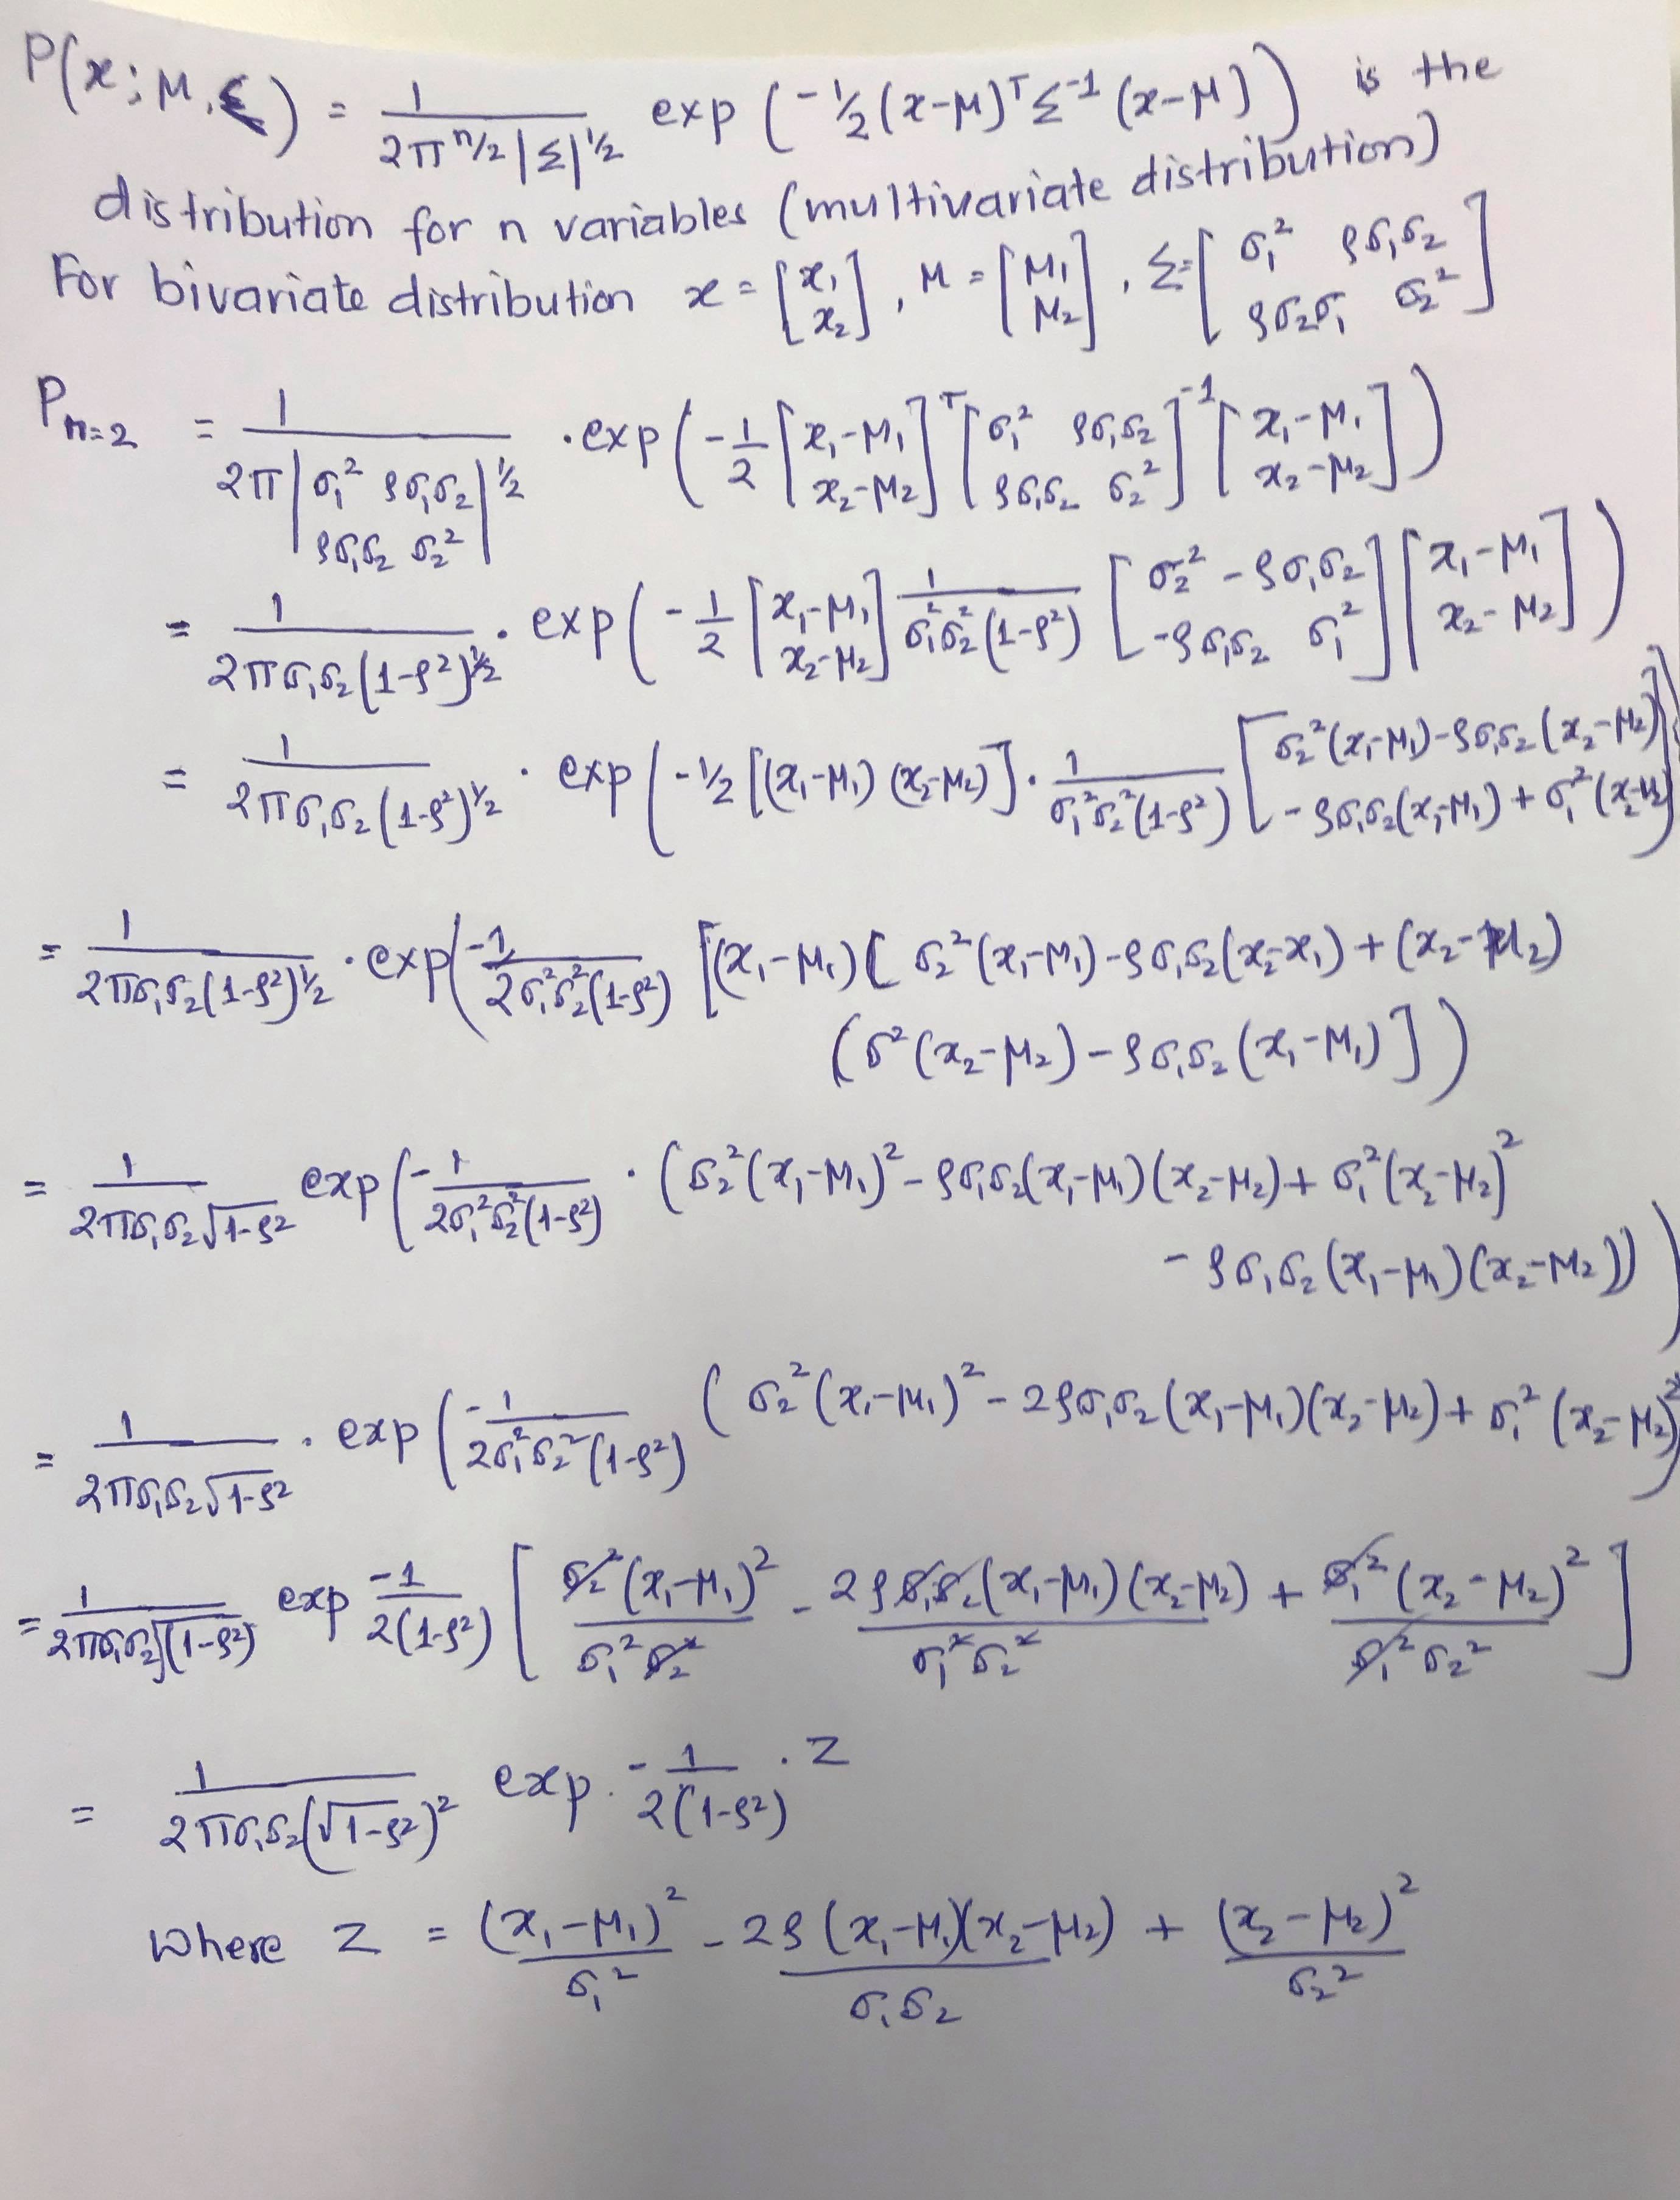 P(x; μ, Σ) = 1/(2π^(n/2) |Σ|^(1/2)) exp (-1/2 (x-μ)^T Σ^-1 (x-μ)) is the
distribution for n variables (multivariate distribution)
For bivariate distribution x = [x₁ x₂], μ = [μ₁ μ₂], Σ = [σ₁² ρσ₁σ₂ ρσ₂σ₁ σ₂²]
P_(n=2) = 1/(2π |σ₁² ρσ₁σ₂ ρσ₁σ₂ σ₂²|^(1/2)) . exp (-1/2 [x₁-μ₁ x₂-μ₂]^T [σ₁² ρσ₁σ₂ ρσ₁σ₂ σ₂²]^-1 [x₁-μ₁ x₂-μ₂])
= 1/(2πσ₁σ₂(1-ρ²)^(1/2)) . exp (-1/2 [x₁-μ₁ x₂-μ₂] 1/(σ₁²σ₂²(1-ρ²)) [σ₂² -ρσ₁σ₂ -ρσ₁σ₂ σ₁²] [x₁-μ₁ x₂-μ₂])
= 1/(2πσ₁σ₂(1-ρ²)^(1/2)) . exp (-1/2 [(x₁-μ₁) (x₂-μ₂)] . 1/(σ₁²σ₂²(1-ρ²)) [σ₂²(x₁-μ₁)-ρσ₁σ₂(x₂-μ₂) -ρσ₁σ₂(x₁-μ₁)+σ₁²(x₂-μ₂)])
= 1/(2πσ₁σ₂(1-ρ²)^(1/2)) . exp (-1/(2σ₁²σ₂²(1-ρ²)) [(x₁-μ₁)( σ₂²(x₁-μ₁)-ρσ₁σ₂(x₂-x₁) + (x₂-μ₂)
(σ²(x₂-μ₂) - ρσ₁σ₂(x₁-μ₁)])
= 1/(2πσ₁σ₂√(1-ρ²)) exp (-1/(2σ₁²σ₂²(1-ρ²)) . (σ₂²(x₁-μ₁)² - ρσ₁σ₂(x₁-μ₁)(x₂-μ₂) + σ₁²(x₂-μ₂)²
- ρσ₁σ₂(x₁-μ₁)(x₂-μ₂)))
= 1/(2πσ₁σ₂√(1-ρ²)) . exp (-1/(2σ₁²σ₂²(1-ρ²)) (σ₂²(x₁-μ₁)² - 2ρσ₁σ₂(x₁-μ₁)(x₂-μ₂) + σ₁²(x₂-μ₂)²)
= 1/(2πσ₁σ₂√(1-ρ²)) exp -1/(2(1-ρ²)) [σ₂²(x₁-μ₁)²/(σ₁²σ₂²) - 2ρσ₁σ₂(x₁-μ₁)(x₂-μ₂)/(σ₁²σ₂²) + σ₁²(x₂-μ₂)²/(σ₁²σ₂²)]
= 1/(2πσ₁σ₂(√(1-ρ²))²) exp . -1/(2(1-ρ²)) . Z
where Z = (x₁-μ₁)²/σ₁² - 2ρ(x₁-μ₁)(x₂-μ₂)/(σ₁σ₂) + (x₂-μ₂)²/σ₂²